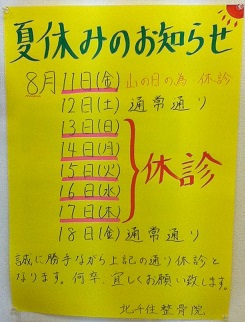 夏休みのお知らせ
8月11日(金) 山の日の為 休診
12日(土) 通常通り
13日(日)
14日(月)
15日(火) 休診
16日(水)
17日(木)
18日(金) 通常通り
誠に勝手ながら上記の通り休診と
なります。何卒、宜しくお願い致します。
北千住整骨院